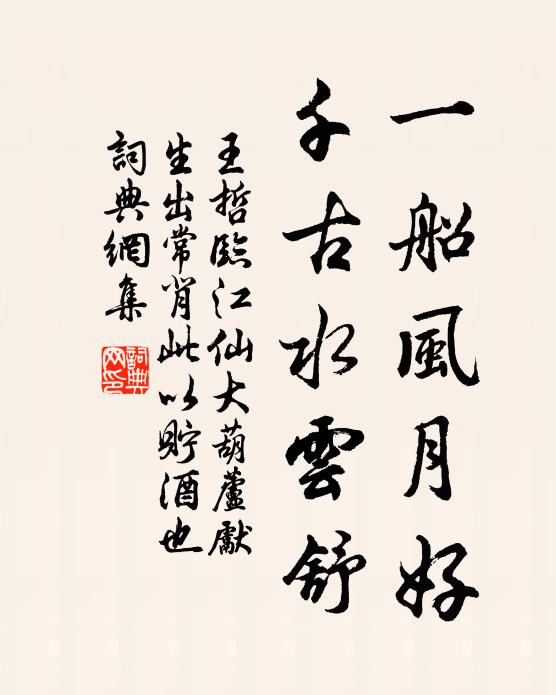 一船風月好
千古水雲舒
王哲臨江仙大葫蘆獻
生出常肖此以貯酒也
詞典網集
詞典網印